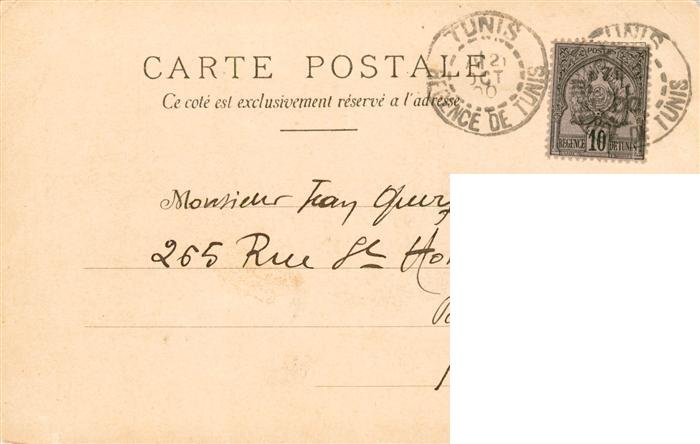 CARTE POSTALE
Ce coté est exclusivement réservé a l'adresse
TUNIS
21
OCT
00
REGENCE DE TUNIS
POSTES
10
REGENCE DE TUNIS
TUNIS
TUNIS
Monsieur Jean
265 Rue St